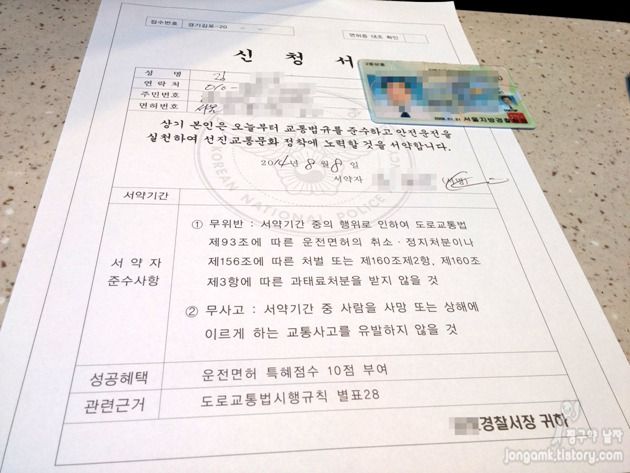 접수번호 경기김포-20
면허증 대조 확인
신 청 서
성 명 김
연락처 010-
주민번호
면허번호 서울
2종보통
서울지방경찰청
상기 본인은 오늘부터 교통법규를 준수하고 안전운전을
실천하여 선진교통문화 정착에 노력할 것을 서약합니다.
2014년 8월 8일
서약자
KOREAN NATIONAL POLICE AGENCY
서약기간
서 약 자
준수사항
① 무위반 : 서약기간 중의 행위로 인하여 도로교통법
제93조에 따른 운전면허의 취소·정지처분이나
제156조에 따른 처벌 또는 제160조제2항, 제160조
제3항에 따른 과태료처분을 받지 않을 것
② 무사고 : 서약기간 중 사람을 사망 또는 상해에
이르게 하는 교통사고를 유발하지 않을 것
성공혜택 운전면허 특혜점수 10점 부여
관련근거 도로교통법시행규칙 별표28
경찰서장 귀하
jongamk.tistory.com